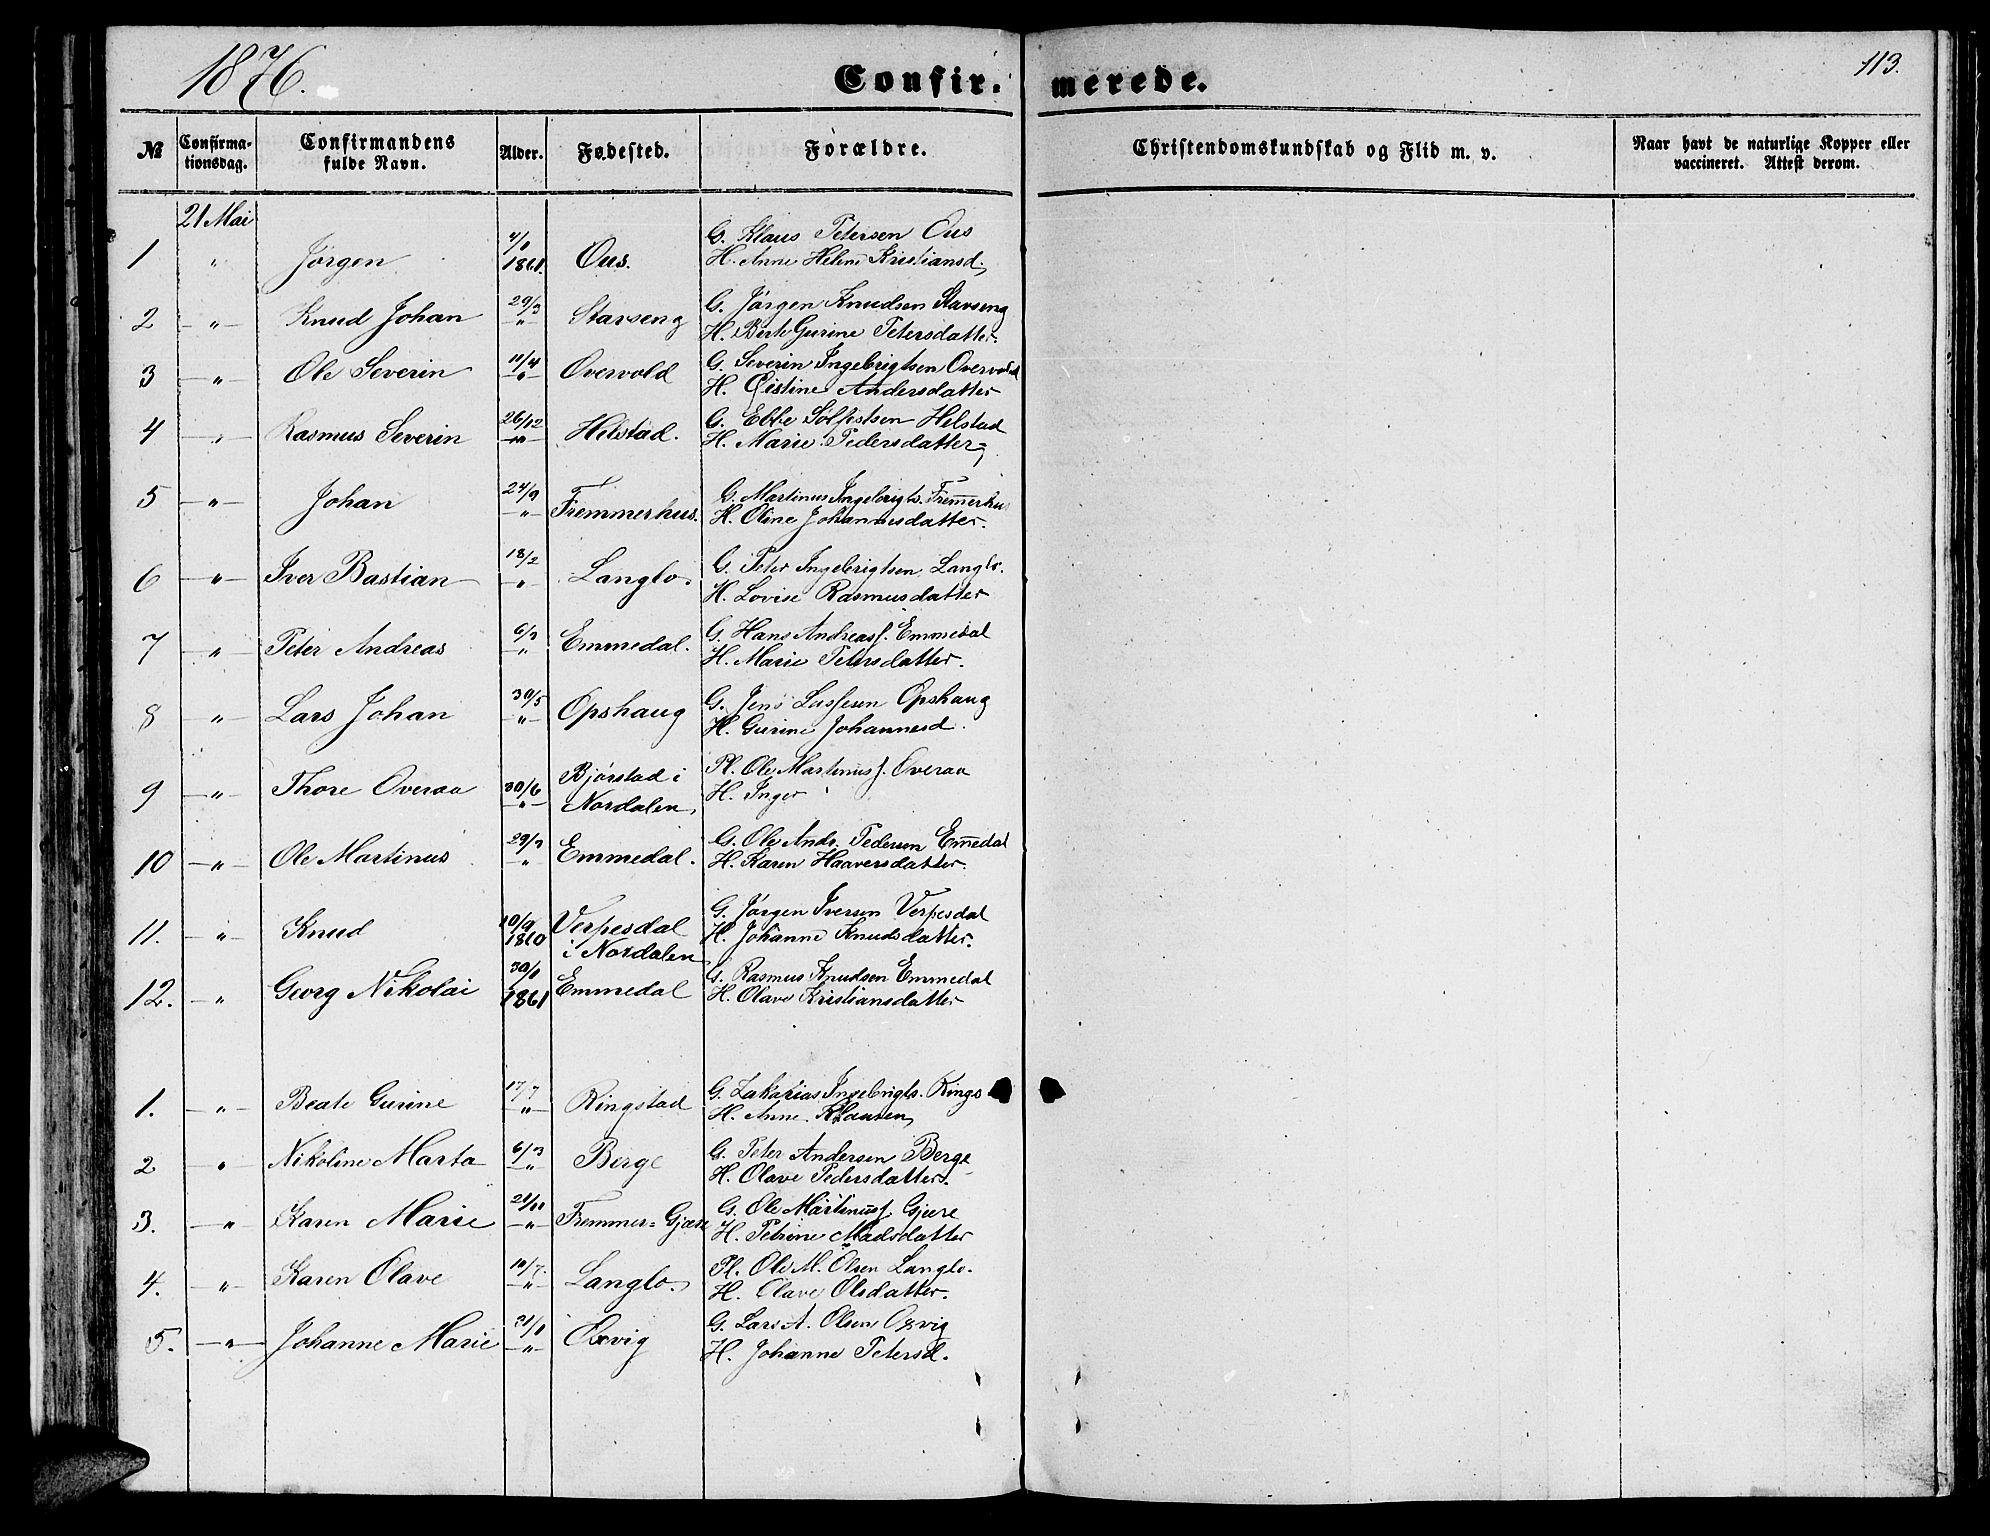 1876.
Confirmerede.
113.
№ Confirmationsdag. Confirmandens fulde Navn. Alder. Fødested. Forældre. Christendomskundskab og Flid m. v. Naar havt de naturlige Kopper eller vaccineret. Attest derom.
21 Mai
1 " Jørgen 4/1 1861. Ous. G. Klaus Petersen Ous
H. Anne Helene Kristiansd.
2 -"- Knud Johan 29/3 -"- Stavseng G. Jørgen Knudsen Stavseng
H. Berte Gurine Petersdatter
3 -"- Ole Severin 11/4 -"- Overvold G. Severin Ingebrigtsen Overvold
H. Cistine Andersdatter
4 -"- Rasmus Severin 26/12 -"- Helstad. G. Ebbe Sølfestsen Helstad
H. Marie Pedersdatter
5 -"- Johan 24/9 -"- Fremmerhus. G. Martinus Ingebrigts. Fremerhus
H. Oline Johannesdatter.
6 -"- Iver Bastian 18/2 -"- Langlo. G. Peter Ingebrigtsen Langlo.
H. Lovise Rasmusdatter
7 -"- Peter Andreas 6/3 -"- Emmedal. G. Hans Andreasf. Emmedal
H. Marie Petersdatter.
8 -"- Lars Johan 30/5 -"- Opshaug G. Jens Lassesen Opshaug
H. Gurine Johannesd.
9 -"- Thore Overaa 30/6 -"- Bjørstad i Pl. Ole Martinusf. Overaa
Nordalen, H. Inger
10 -"- Ole Martinus 29/3 -"- Emmedal. G. Ole Andr. Pedersen Emedal
H. Karen Haaversdatter.
11. -"- Knud 10/9 1860 Verpesdal G. Jørgen Iversen Verpesdal
i Nordalen H. Johanne Knudsdatter.
12. -"- Georg Nikolai 30/1 1861 Emmedal G. Rasmus Knudsen Emmedal
H. Olave Kristiansdatter
1. -"- Beate Gurine 17/7 -"- Ringstad G. Zakarias Ingebrigts. Rings
H. Anne Klausen
2 " Nikoline Marta 6/3 -"- Berge G. Peter Andersen Berge
H. Olave Pedersdatter.
3. -"- Karen Marie 21/11 -"- Fremmer=Gjære G. Ole Martinusf. Gjære
H. Petrine Madsdatter
4. -"- Karen Olave 10/7. -"- Langlo. Pl. Ole M. Olsen Langlo.
H. Olave Olsdatter.
5. -"- Johanne Marie 31/1 -"- Oxvig G. Lars A. Olsen Oxvig
H. Johanne Petersd.